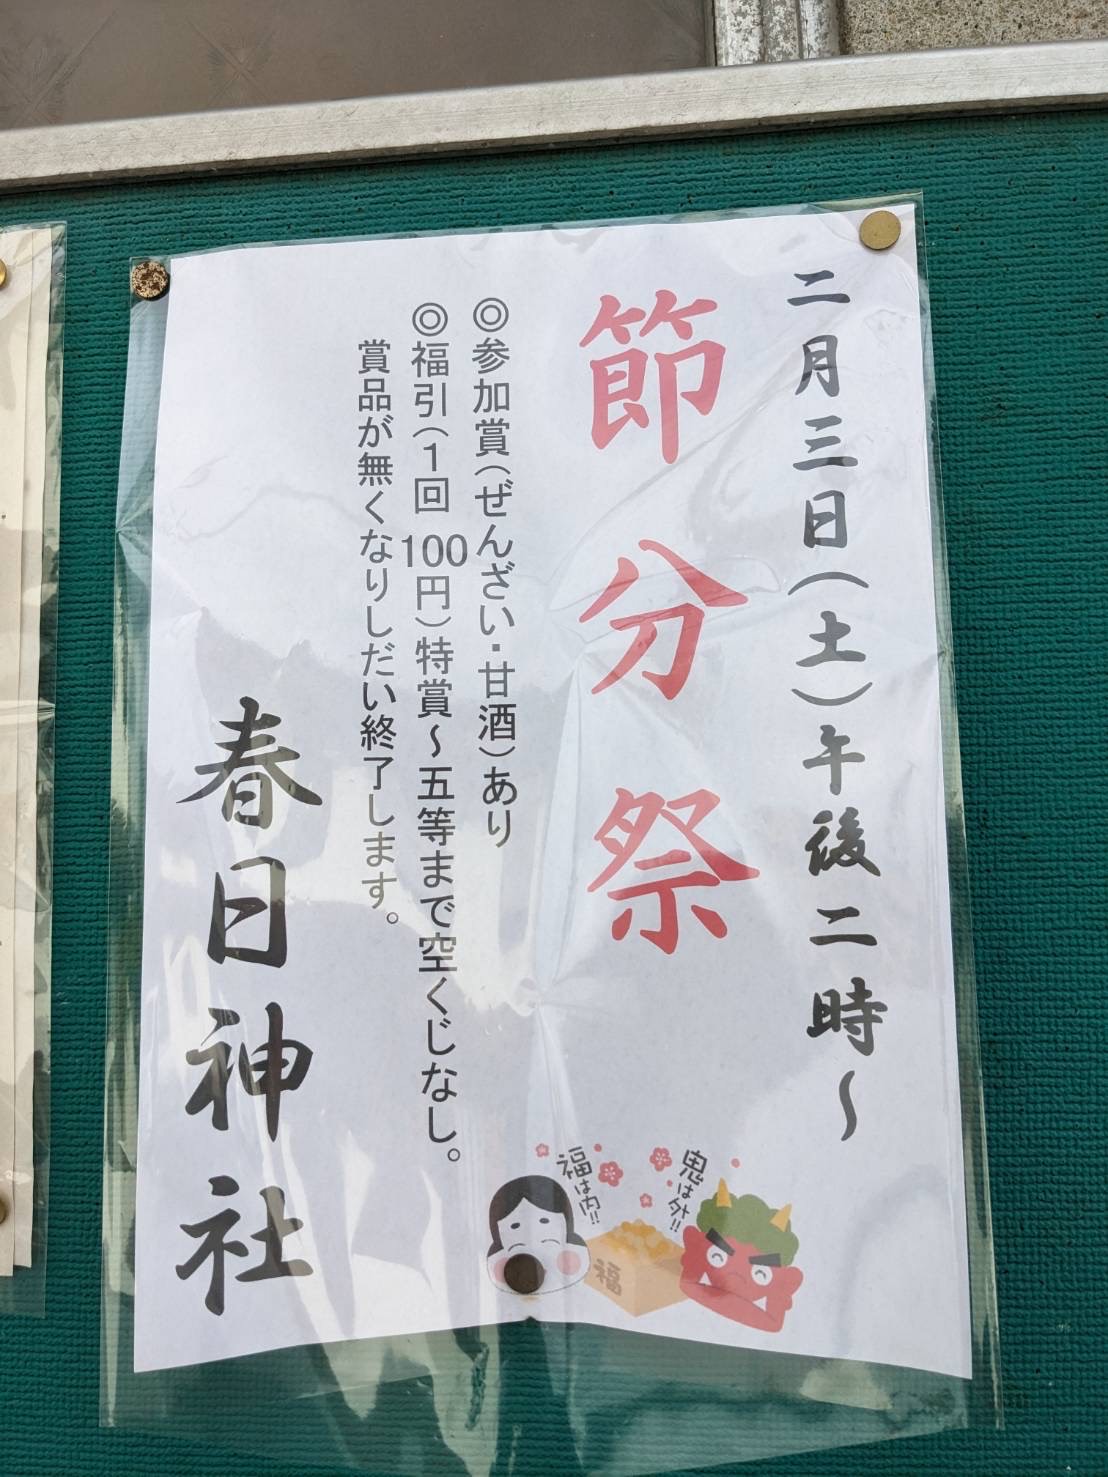 二月三日(土)午後二時～
節分祭
◎参加賞(ぜんざい・甘酒)あり
◎福引(1回 100円)特賞～五等まで空くじなし。
賞品が無くなりしだい終了します。
春日神社
鬼は外!!
福は内!!
福